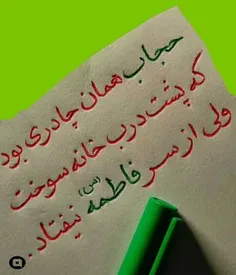 حجاب همان چادری بود
که پشت درب خانه سوخت
ولی از سر فاطمه (س) نیفتاد..